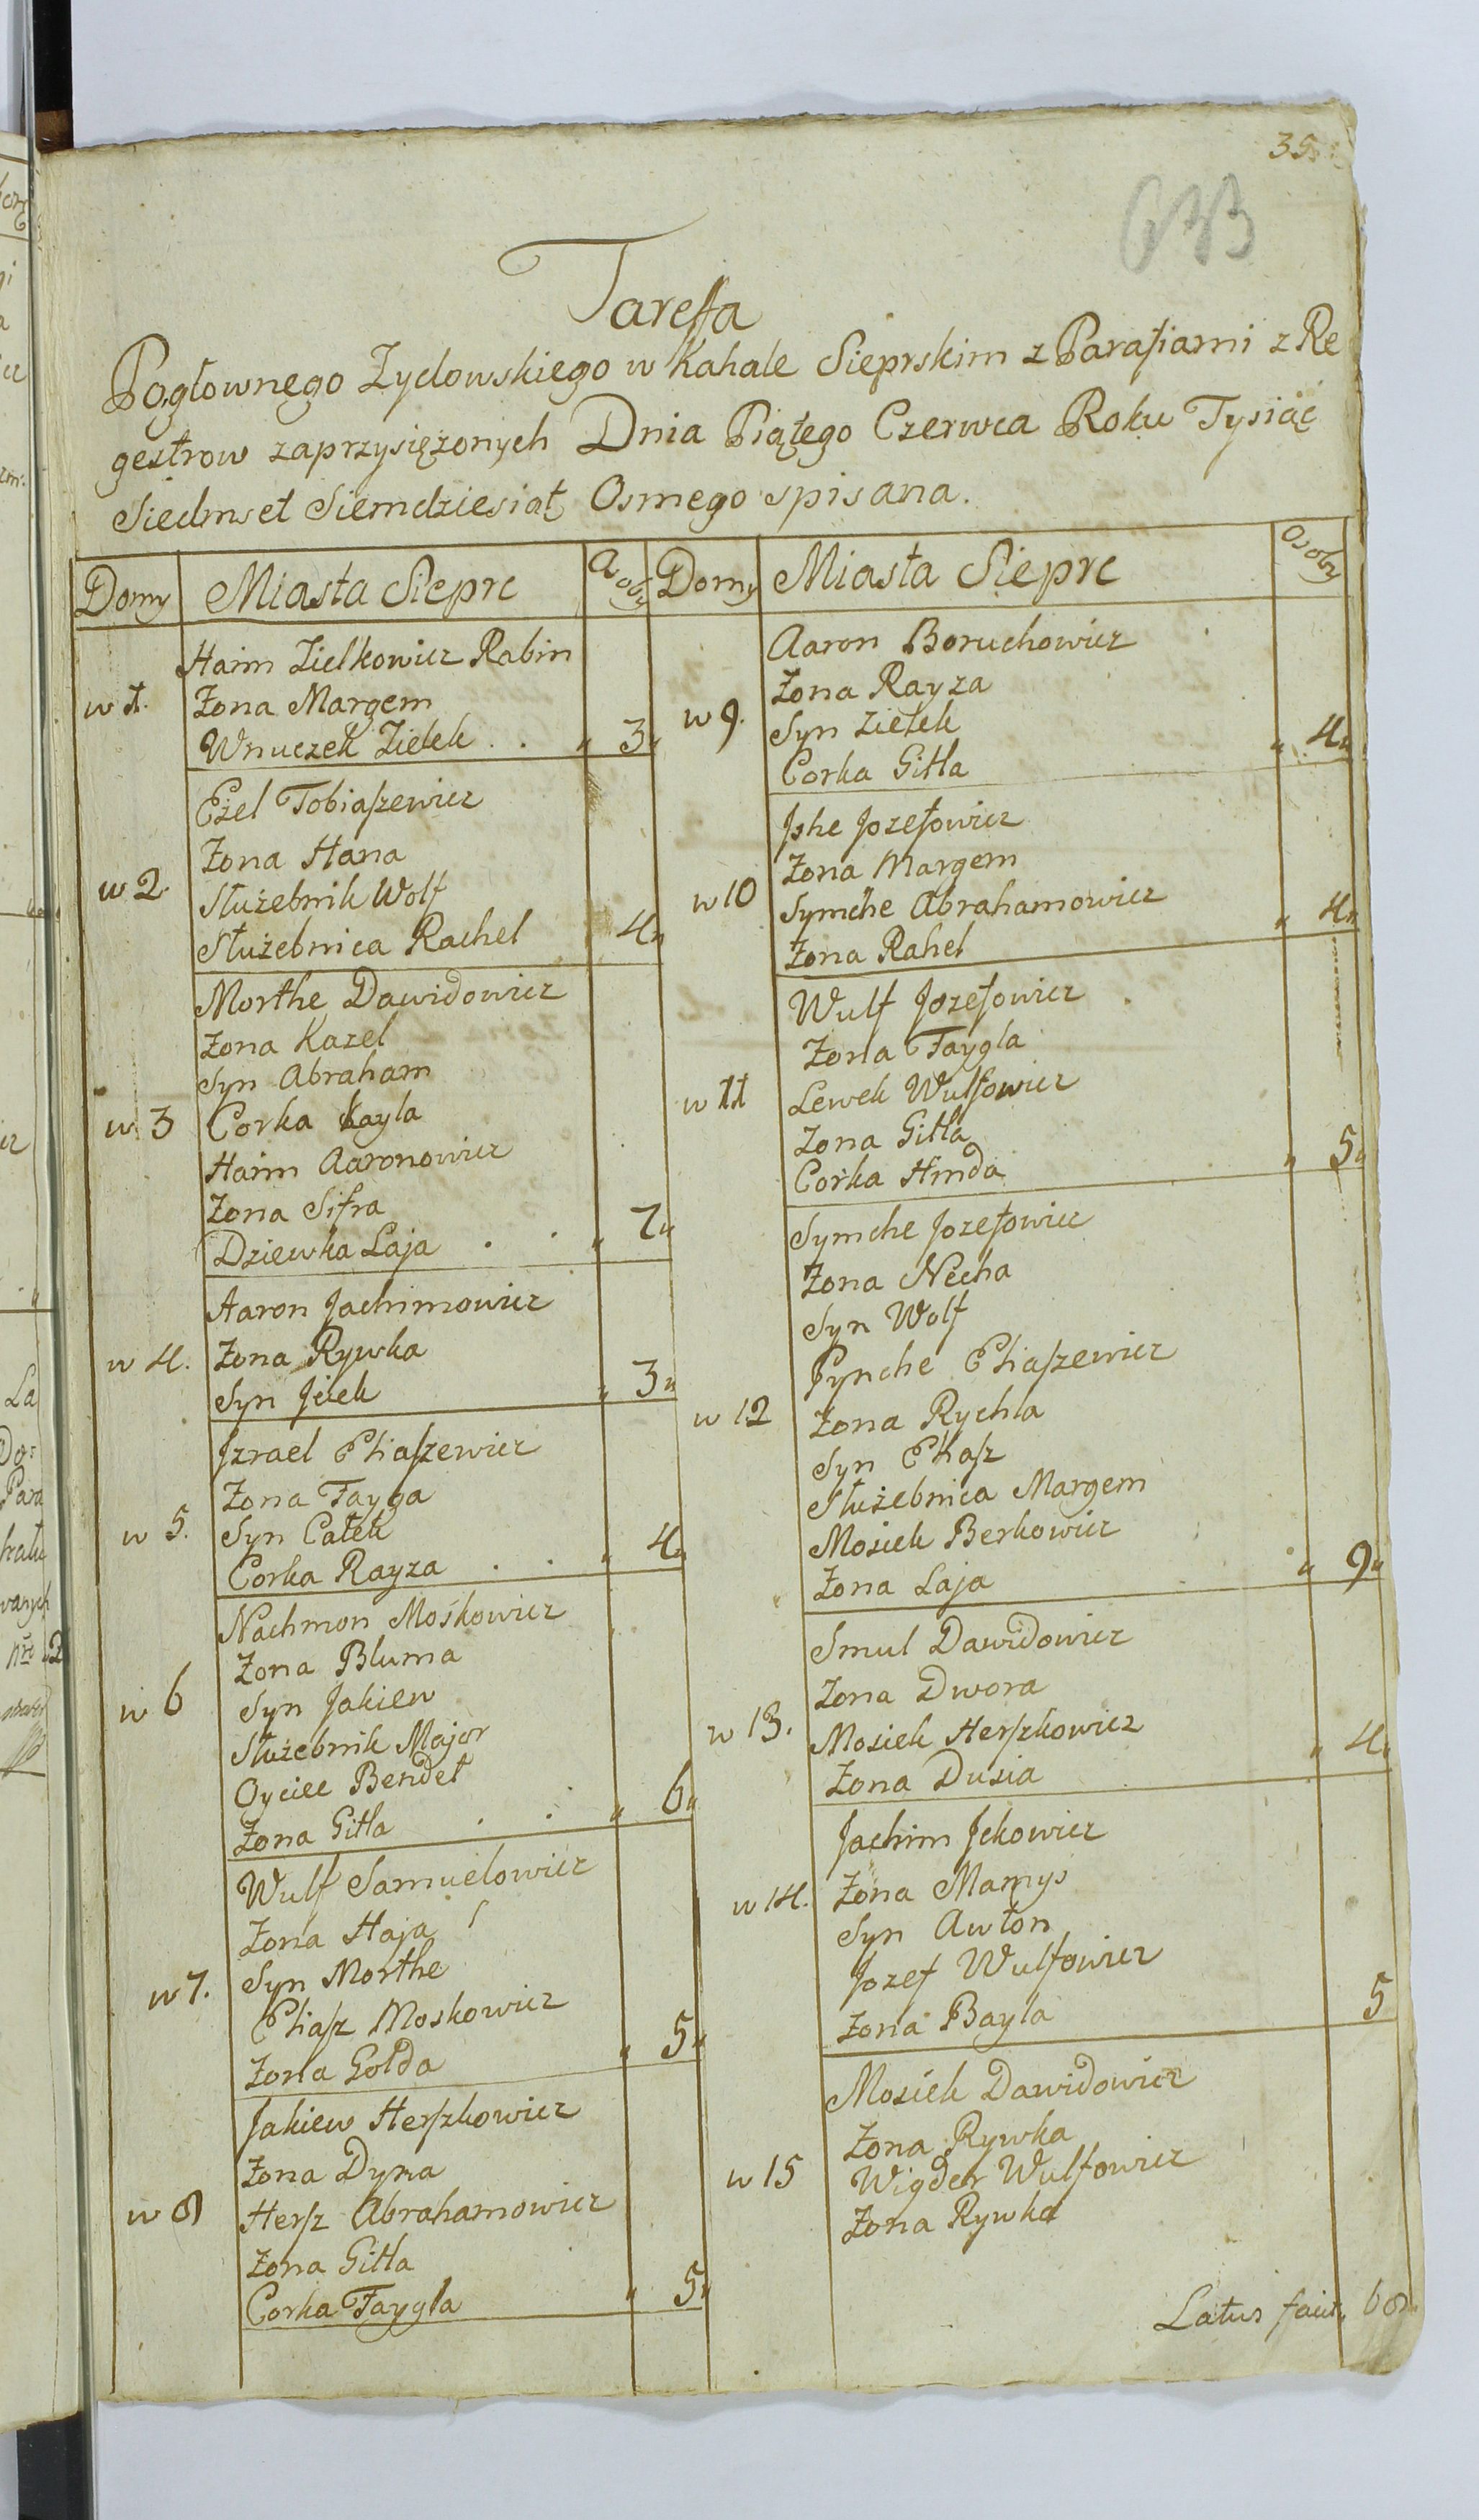 35
633
Tareffa
Pogłownego Zydowskiego w Kahale Sieprskim z Parafiami z Re
gestrow zaprzysiężonych Dnia Piątego Czerwca Roku Tysiąc
Siedmset Siemdziesiąt Osmego spisana.
Domy Miasta Sieprc Osoby
w 1. Haim Zielkowicz Rabin
Zona Margem
Wnuczek Zielek . . " 3"
w 2. Ezel Tobiaszewicz
Zona Hana
Służebnik Wolf
Służebnica Rachel 4"
w 3 Morthe Dawidowicz
Zona Kazel
Syn Abraham
Corka Kayla
Haim Aaronowicz
Zona Sifra
Dziewka Laja . . " 7"
w 4. Aaron Jachimowicz
Zona Rywka
Syn Jcek " 3"
w 5. Jzrael Eliaszewicz
Zona Fayga
Syn Całek
Corka Rayza . . " 4"
w 6 Nachmon Mośkowicz
Zona Bluma
Syn Jakiew
Służebnik Major
Oyciec Bendet
Zona Gitla . . " 6"
w 7. Wulf Samuelowicz
Zona Haja
Syn Morthe
Eliasz Moskowicz
Zona Golda " 5"
w 8 Jakiew Herszkowicz
Zona Dyna
Hersz Abrahamowicz
Zona Gitla
Corka Faygla " 5"
Domy Miasta Sieprc Osoby
w 9. Aaron Boruchowicz
Zona Rayza
Syn Zielek
Corka Gitla " 4"
w 10 Jshe Jozefowicz
Zona Margem
Symche Abrahamowicz
Zona Rahel " 4"
w 11 Wulf Jozefowicz
Zona Faygla
Lewek Wulfowicz
Zona Gitla
Corka Hinda " 5"
w 12 Symche Jozefowicz
Zona Necha
Syn Wolf
Pynche Eliaszewicz
Zona Rychla
Syn Eliasz
Służebnica Margem
Mosiek Berkowicz
Zona Laja " 9"
w 13. Smul Dawidowicz
Zona Dwora
Mosiek Herszkowicz
Zona Dusia " 4"
w 14. Jachim Jckowicz
Zona Mamys
Syn Awton
Jozef Wulfowicz
Zona Bayla 5
w 15 Mosiek Dawidowicz
Zona Rywka
Wigder Wulfowicz
Zona Rywka
Latus facit 68"